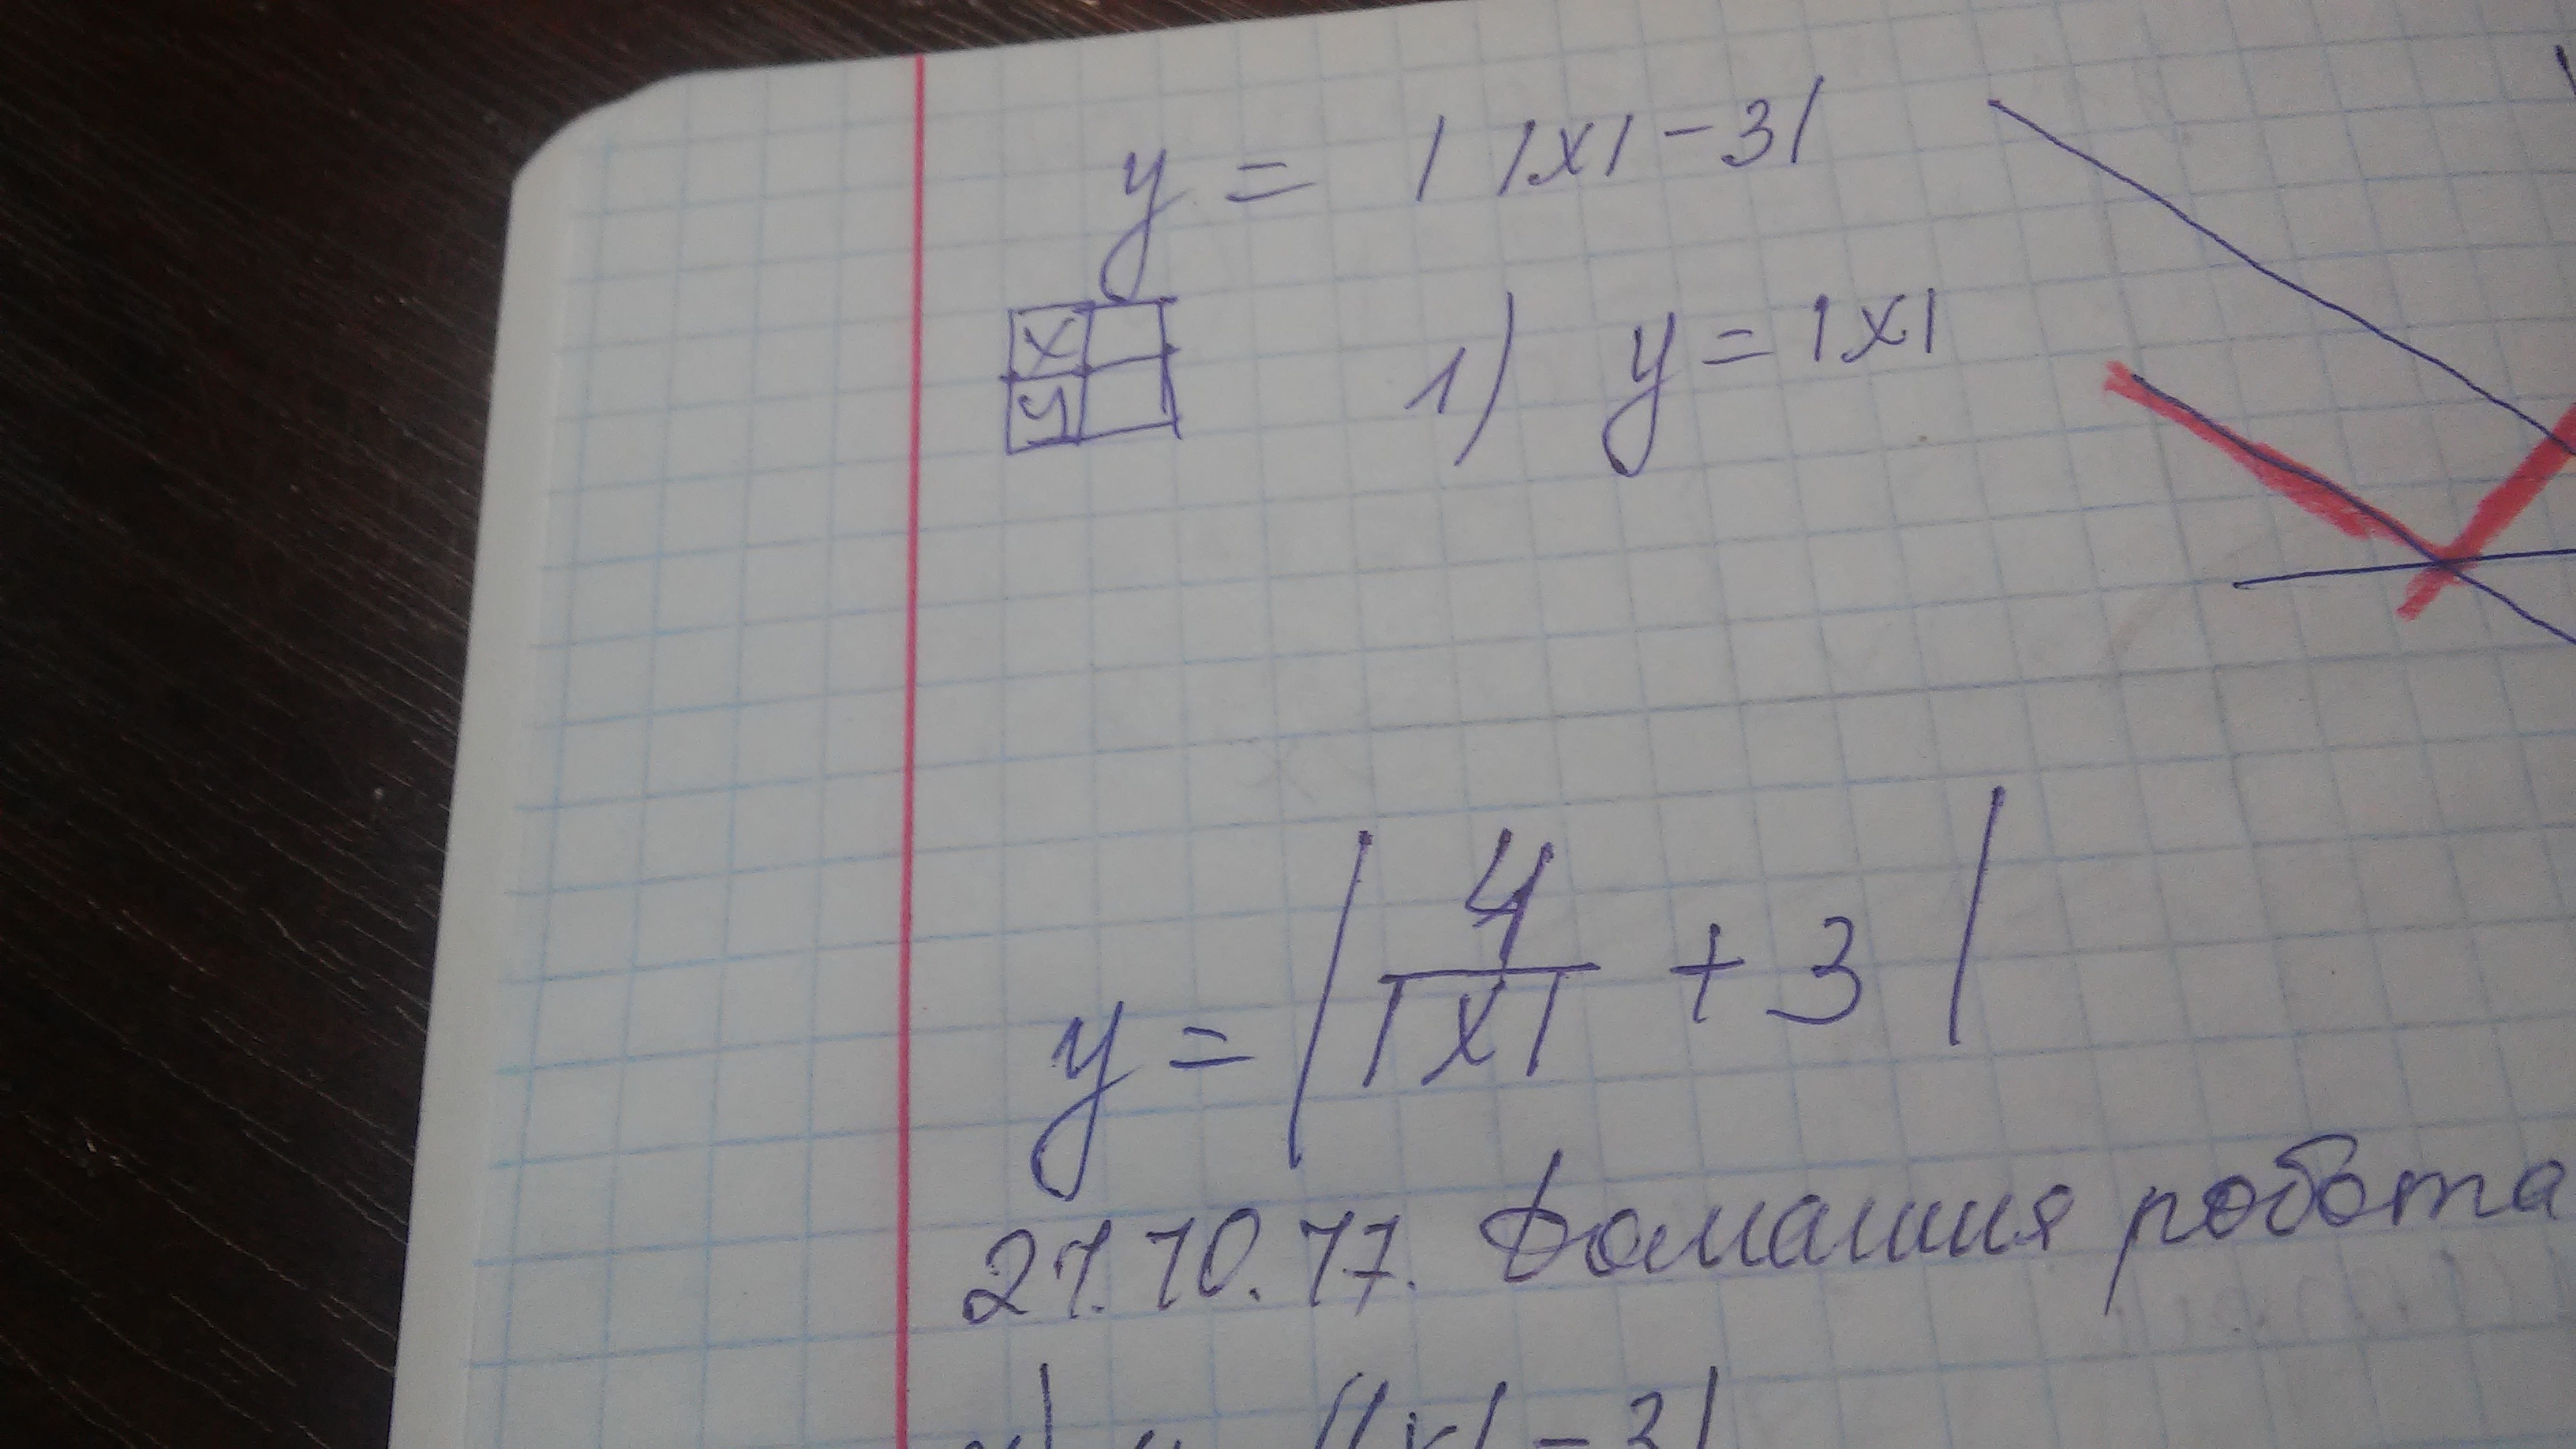 y = | |x| - 3|
x
y
1) y = |x|
y = | 4/|x| + 3 |
21.10.17. Домашня робота
||x| - 3|